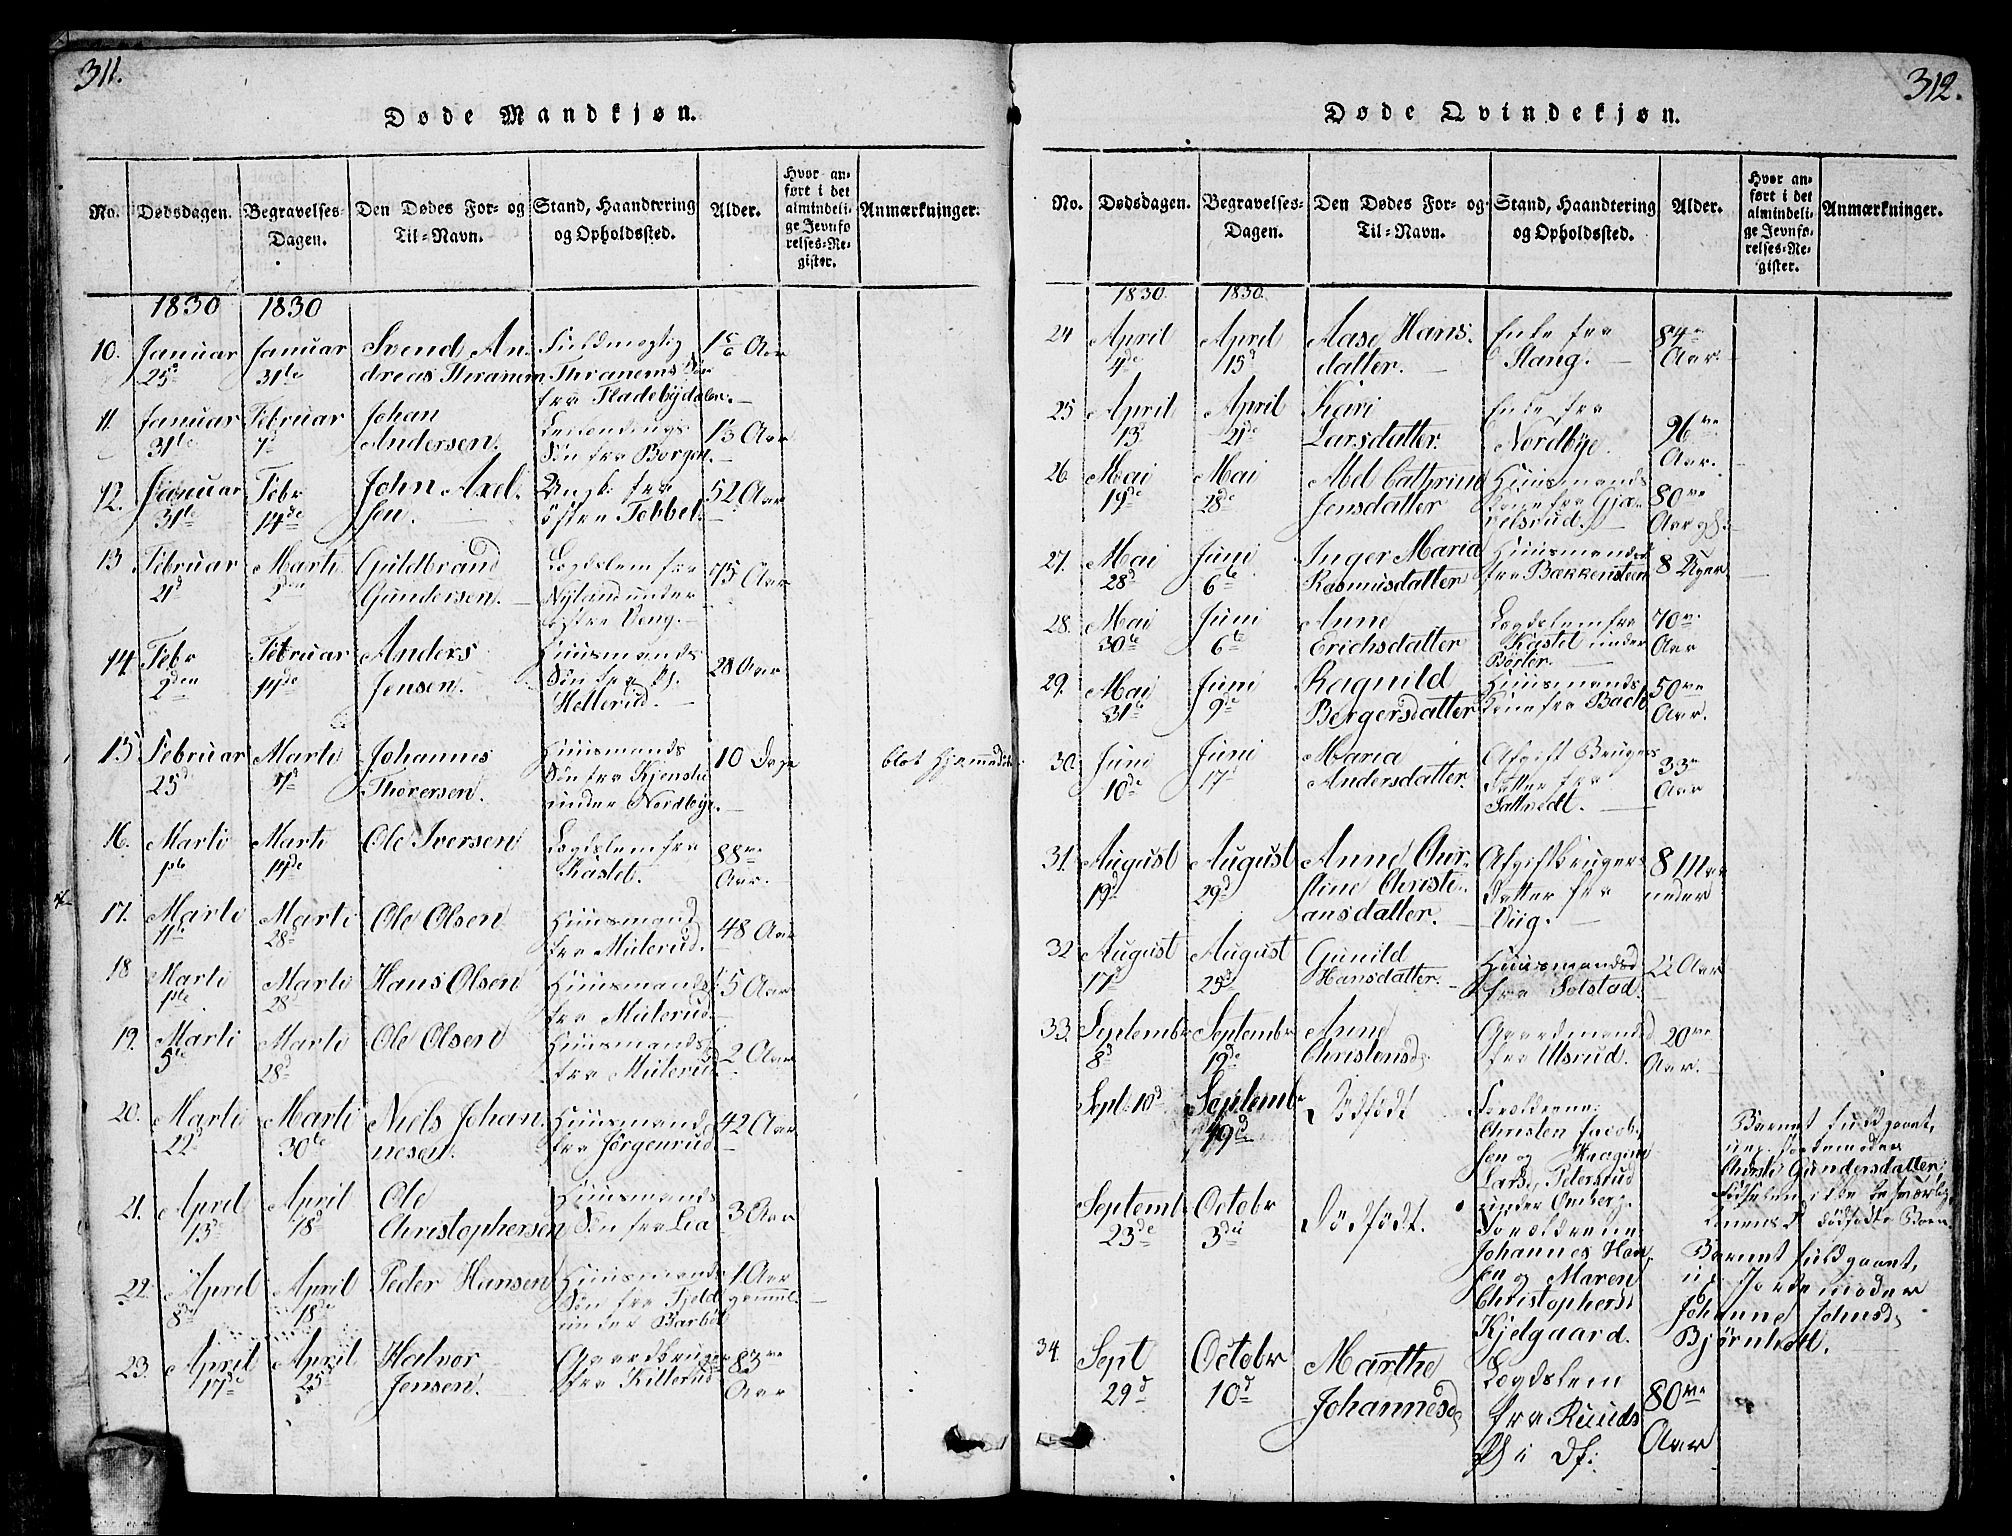 311.
Døde Mandkjøn.
No.
Dødsdagen.
Begravelses-
Dagen.
Den Dødes For- og
Til-Navn.
Stand, Haandtering
og Opholdssted.
Alder.
Hvor an-
ført i det
almindeli-
ge Jevnfø-
relses-Re-
gister.
Anmærkninger.
1830 1830
10. Januar 25d Januar 31te Svend An-
dreas Thranem Fuldmægtig
Thranems Søn
fra Fladebydalen. Aar
11. Januar 31te Februar 7d Johan
Andersen.
Søn fra Borgen. 13 Aar
12. Januar 31te Febr 14de John Axel-
sen. Ungk. fra
østre Tobbel. 52 Aar
13 Februar 21d Marti 2den Guldbrand
Gundersen. Lægdslem fra
Nylund under
østre Voug. 75 Aar
14. Febr 2den Februar 14de Anders
Jensen. Huusmands
Søn fra
Hellerud. 28 Aar
15 Februar 25d Marti 7d Johannes
Thorersen. Huusmands
Søn fra Kjenslie
under Nordbye. 10 Dage blot hjemmedøbt
16. Marti 1te Marti 14de Ole Iversen Lægdslem fra
Kastet. 88
Aar.
17. Marti 11te Marti 28d Ole Olsen Huusmand
fra Mulerud. 48 Aar
18 Marti 1te Marti 28d Hans Olsen Huusmands
fra Mulerud. 5 Aar
19. Marti 5te Marti 28d Ole Olsen Huusmands
fra Mulerud 2 Aar
20. Marti 22d Marti 30te Niels Johan-
nesen. Huusmand
fra Jörgenrud 42 Aar
21. April 13d April 18d Ole
Christophersen Huusmands
Søn fra Lia 3 Aar
22. April 8de April 18de Peder Hansen Huusmands
Søn fra Fjeld
under Barbøl 1 Aar
gammel.
23. April 17de April 25d Halvor
Jensen. Gaardbruger
fra Killerud 83
Aar
312.
Døde Qvindekjøn.
No.
Dødsdagen.
Begravelses-
Dagen.
Den Dødes For- og
Til-Navn.
Stand, Haandtering
og Opholdssted.
Alder.
Hvor an-
ført i det
almindeli-
ge Jevnfø-
relses-Re-
gister.
Anmærkninger.
1830. 1830.
24 April 4de April 15d Aase Hans-
datter. Enke fra
Stang. 84
Aar.
25 April 13d April 21de Kari
Larsdatter. Enke fra
Nordbye. 96
Aar.
26. Mai 19de Mai 28de Abel Cathrine
Jensdatter Huusmands
Kone fra Gjæ-
velsrud. 80
Aar gl.
27. Mai 28d Juni 6te Inger Maria
Rasmusdatter Huusmandsd
fra Bakkensteen 8 Uger
28. Mai 30te Juni 6te Anne
Erichsdatter Lægdslem fra
Kastet under
Börter. 70
Aar
29. Mai 31te Juni 9de Ragnild
Bergersdatter Huusmands
Kone fra Bach 50
Aar.
30. Juni 10de Juni 17d Maria
Andersdatter. Afgift Brugers
Datter fra
33
Aar
31. August 19d August 29d Anne Chir-
stine Christi-
ansdatter. Afgiftbrugers
Datter fra
Viig. 8
32 August 17d August 25d Gunild
Hansdatter. Huusmandsd
fra Solstad. 22 Aar
33. Septembr 8d Septembr 19de Anne
Christensd. Gaardmandsd
fra Ulsrud. 20
Aar.
Sept: 10d Septembr 19d Dödfödt Forældrene:
Christen Jacob-
sen og
Larsd. Petersrud
under Omberg. Barnet fuldgaaet,
Jordemoder
Gundersdatter
Septembr 23de Octobr 3die Dödfödt. Forældrene
Johannes Han-
sen og Maren
Christophersd
Kjelgaard. Barnet fuldgaaet,
Jordemoder
Johanne Johnsd.
Bjørnholt.
34. Sept 29d Octobr 10d Marthe
Johannesd. Lægdslem
fra Ruuds
80
Aar